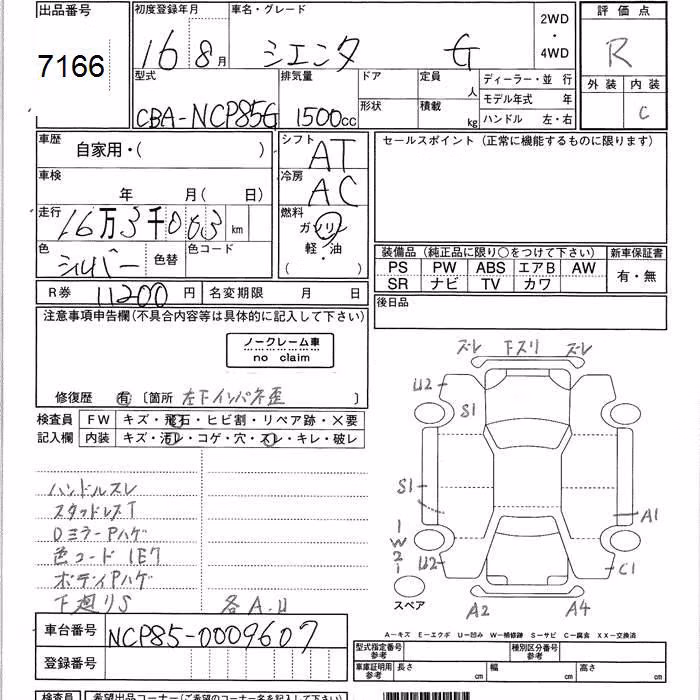 出品番号 初度登録年月 車名・グレード 2WD・4WD 評価点
7166 16 8月 シエンタ G R
型式 排気量 ドア 定員 人 ディーラー・並 行 外装 内装
CBA-NCP85G 1500cc 形状 積載 kg モデル年式 年 C
ハンドル 左・右
車歴 自家用・( ) シフト AT セールスポイント(正常に機能するものに限ります)
車検 年 月( 日) 冷房 AC
走行 16万3千003km 燃料 ガソリン
軽・油
( )
色 シルバー 色替 色コード
装備品(純正品に限り○をつけて下さい) 新車保証書
PS PW ABS エアB AW 有・無
SR ナビ TV カワ
R券 11200円 名変期限 月 日 後日品
注意事項申告欄(不具合内容等は具体的に記入して下さい)
ノークレーム車
no claim
修復歴 有 〔箇所 左下インパネ歪 〕
検査員 FW キズ・飛石・ヒビ割・リペア跡・×要
記入欄 内装 キズ・汚レ・コゲ・穴・スレ・キレ・破レ
ズレ 下スリ ズレ
U2 S1
S1
A1
W2
U2 C1
スペア A2 A4
ハンドルスレ
スタッドレスT
DミラーPハゲ
色コード 1E7
ボディPハゲ
下廻りS 各A.U
A-キズ E-エクボ U-凹み W-補修跡 S-サビ C-腐食 XX-交換済
車台番号 NCP85-0009607
登録番号
型式指定番号 参考 種別区分番号 参考
車庫証明用 参考 長さ cm 幅 cm 高さ cm
検査員 希望出品コーナー(ご希望のコーナー名を記入して下さい)